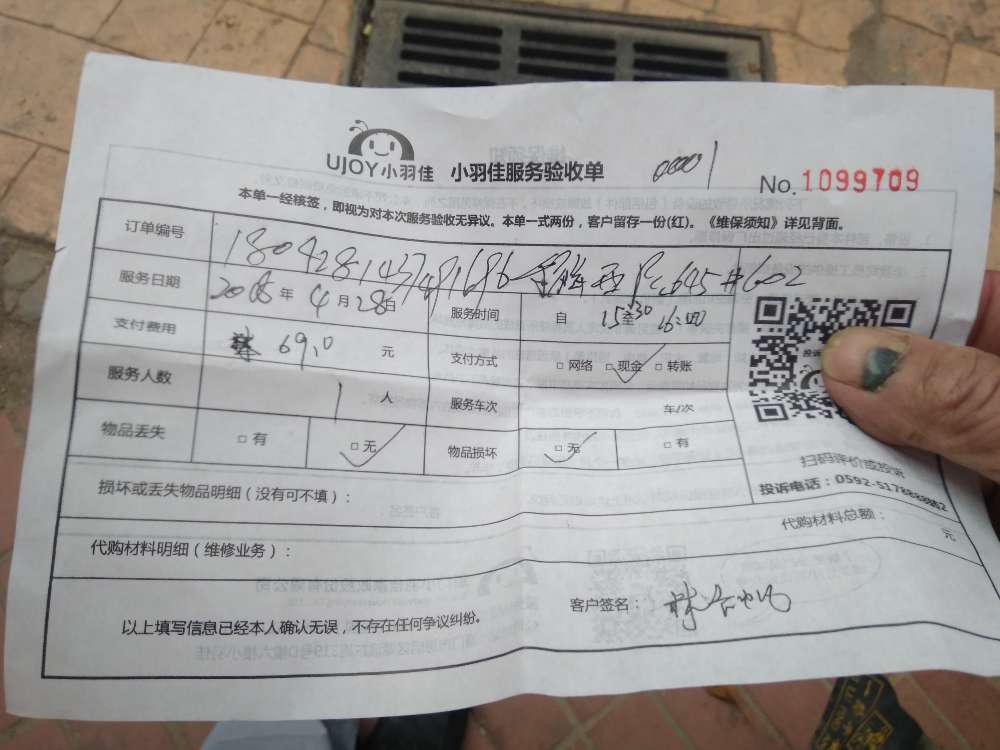 UJOY小羽佳 小羽佳服务验收单 00001 No. 1099709
本单一经核签，即视为对本次服务验收无异议。本单一式两份，客户留存一份(红)。《维保须知》详见背面。
订单编号 1804281437481686
服务日期 2018 年 4 月 28 日 服务时间 自 15:30 至 16:00
支付费用 69.0 元 支付方式 □ 网络 □ 现金 □ 转账
服务人数 1 人 服务车次 车/次
物品丢失 □ 有 □ 无 物品损坏 □ 无 □ 有
扫码评价或投诉
投诉电话：0592-517888
损坏或丢失物品明细（没有可不填）：
代购材料明细（维修业务）： 代购材料总额： 元
以上填写信息已经本人确认无误，不存在任何争议纠纷。 客户签名：